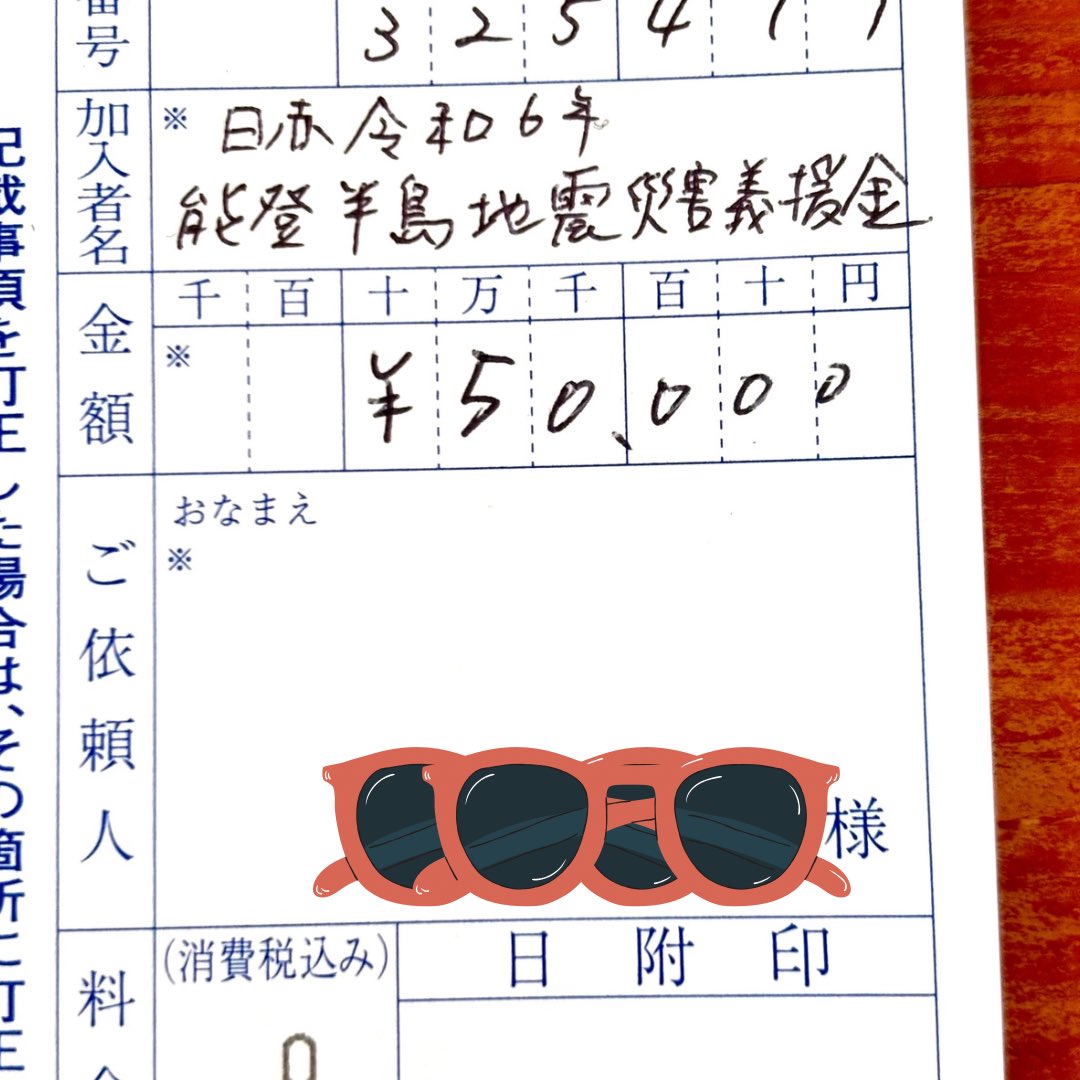 番号
3 2 5 4 1 1
加入者名
※ 日赤令和6年
能登半島地震災害義援金
金額
千 百 十 万 千 百 十 円
※ ¥50,000
ご依頼人
おなまえ
※
様
料金
(消費税込み)
日附印
0
記載事項を訂正した場合は、その箇所に訂正